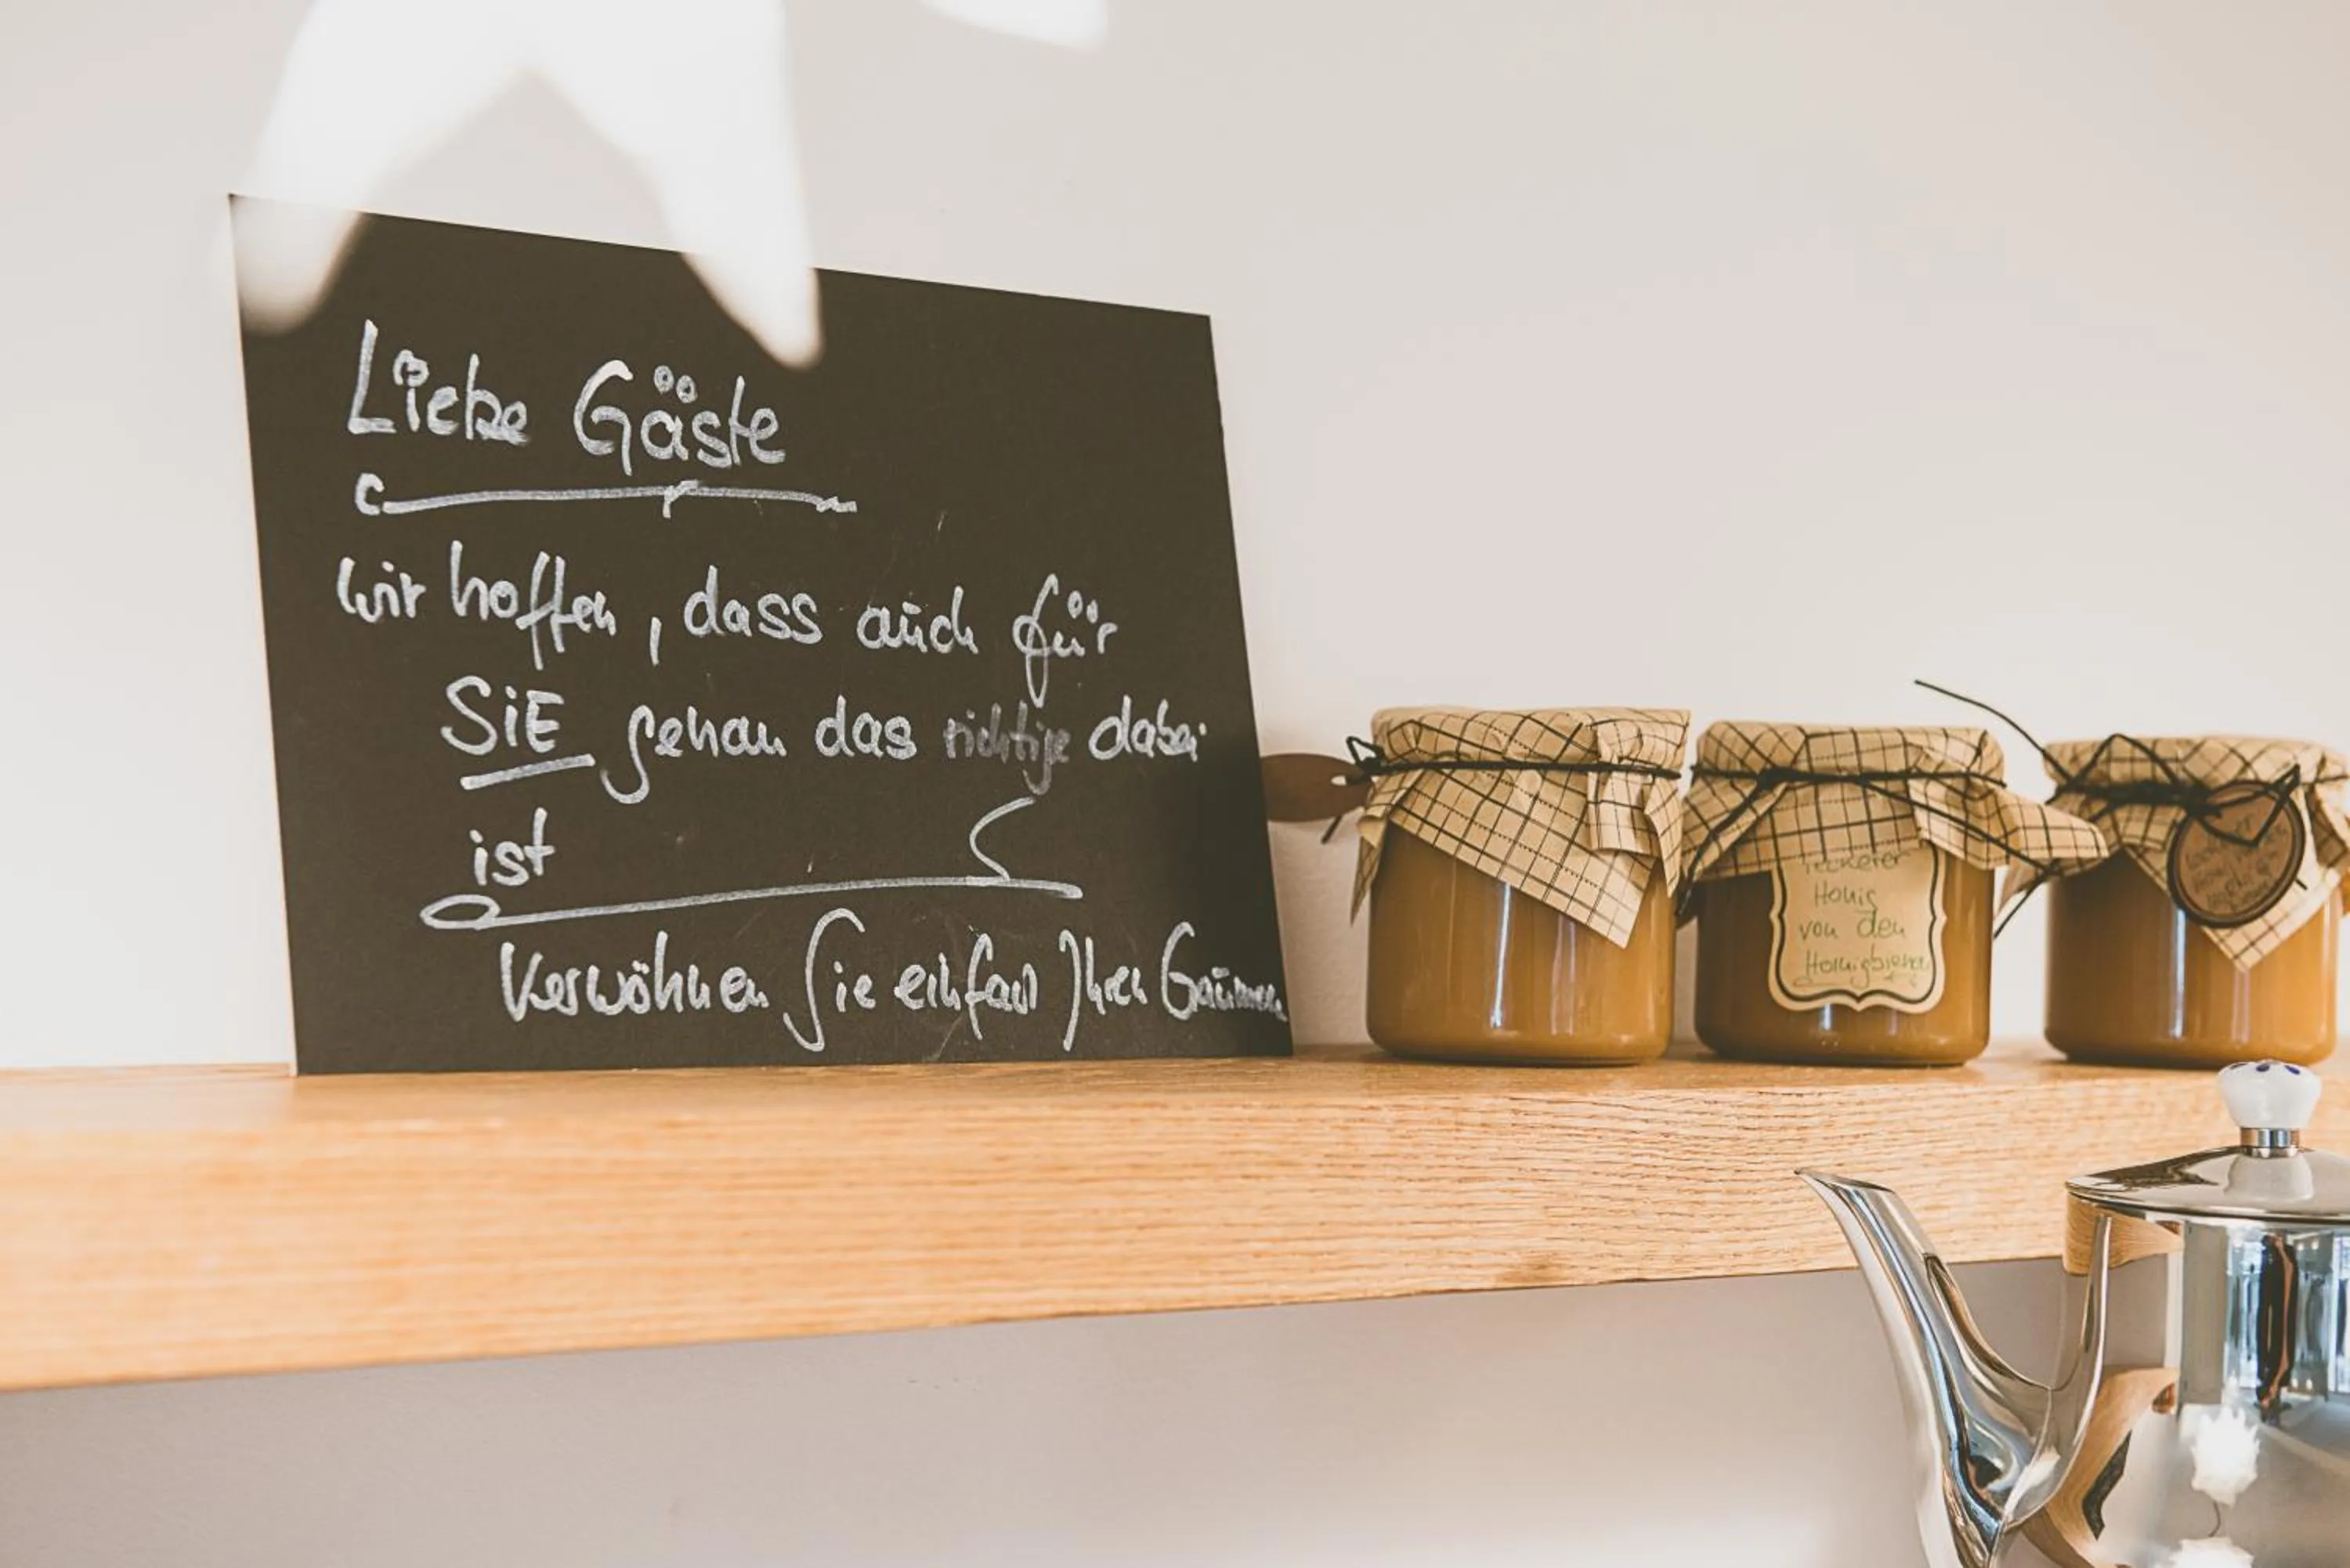 Liebe Gäste
wir hoffen, dass auch für
SiE genau das richtige dabei
ist
Verwöhnen Sie einfach Ihren Gaumen
leckerer
Honig
von den
Honigbienen